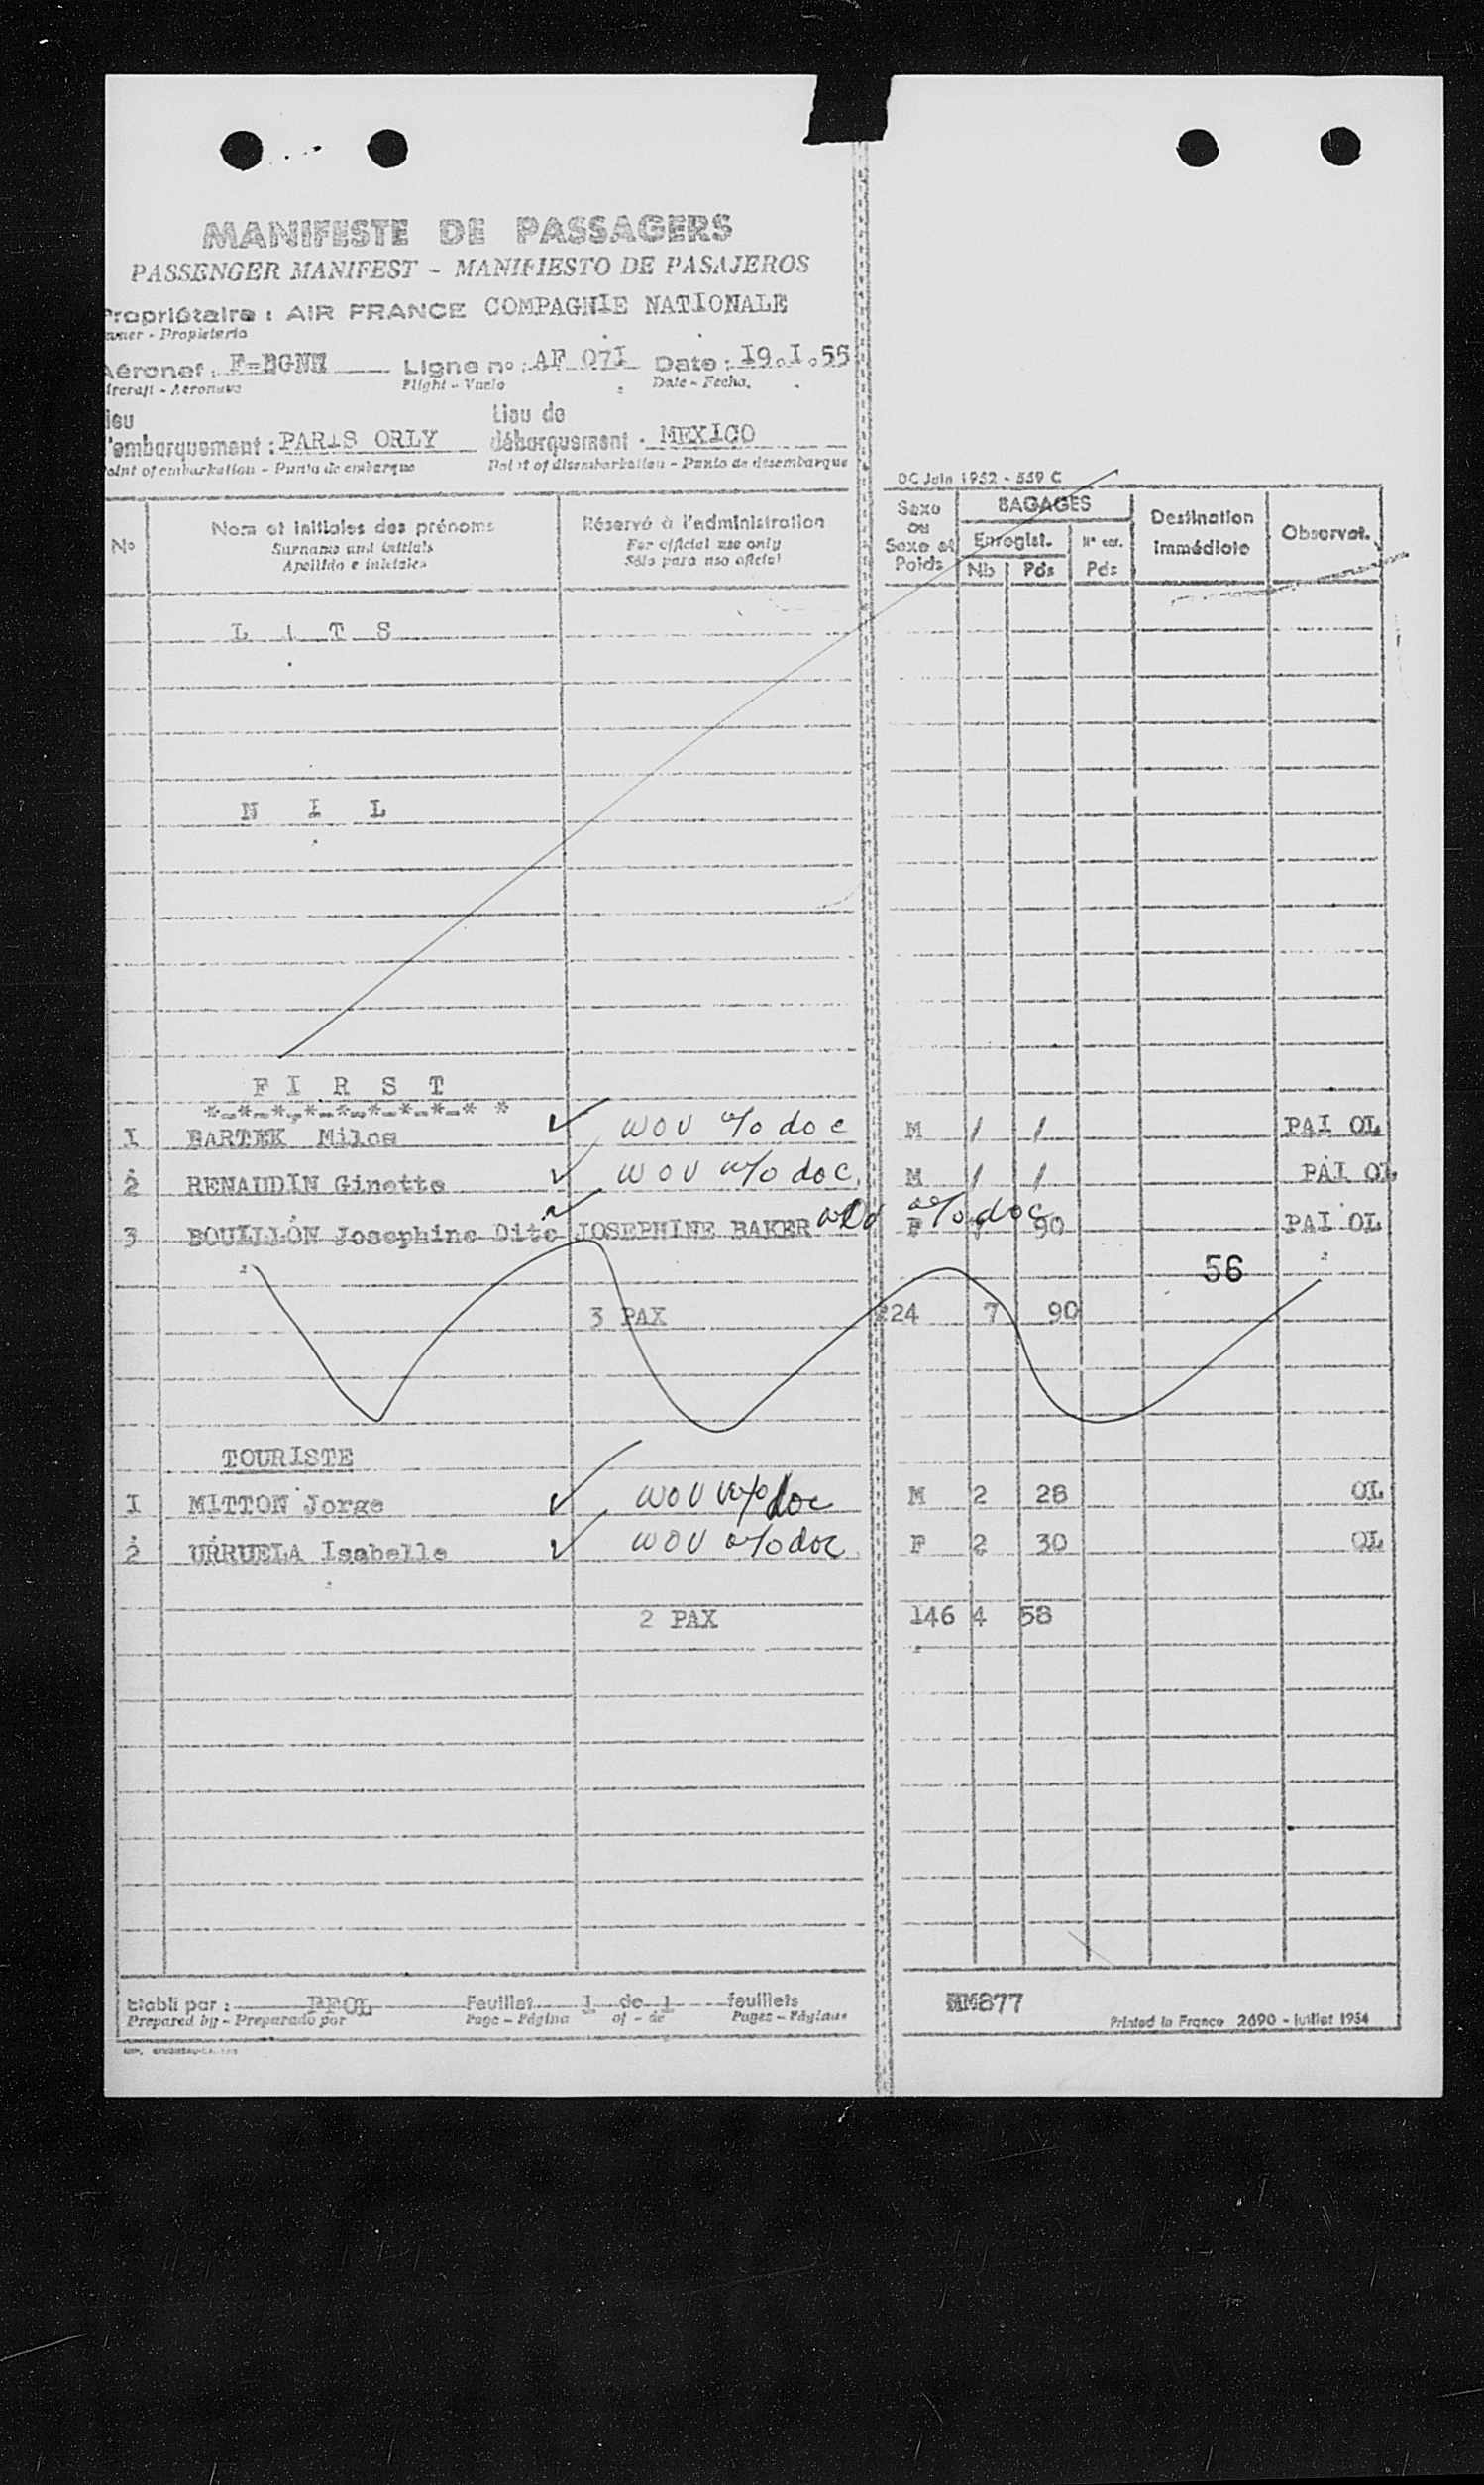 MANIFESTE DE PASSAGERS
PASSENGER MANIFEST - MANIFIESTO DE PASAJEROS
Propriétaire : AIR FRANCE COMPAGNIE NATIONALE
Owner - Propieterio
Aéronef : F=BGNE Ligne no : AF 071 Date : I9.I.55
Aircraft - Aeronave Flight - Vuelo Date - Fecha.
Lieu Lieu de
d'embarquement : PARIS ORLY débarquement . MEXICO
Point of embarkation - Punto de embarque Point of disembarkation - Punto de desembarque
DC Juin 1952 - 559 C
No Nom et initiales des prénoms Réservé à l'administration Sexe ou Sexe et Poids BAGAGES Destination immédiate Observat.
Surname and initials For official use only Enregist.
Apellido e iniciales Sólo para uso oficial Nb Pds Pds
L I T S
N I L
F I R S T
*-*-*-*-*-*-*-*-* *
I BARTEK Milos ✓ wov w/o doc M / / PAI OL
2 RENAUDIN Ginette ✓ wov w/o doc. M / / PAI OL
3 BOUILLON Josephine Dite JOSEPHINE BAKER wov w/o doc F 90 PAI OL
56
3 PAX 224 7 90
TOURISTE
I MITTON Jorge ✓ wov w/o doc M 2 28 OL
2 URRUELA Isabelle ✓ wov w/o doc F 2 30 OL
2 PAX 146 4 58
Etabli par : PFOL Feuillet 1 de 1 feuillets MM877
Prepared by - Preparado por Page - Página of - de Pages - Páginas Printed in France 2690 - Juillet 1954